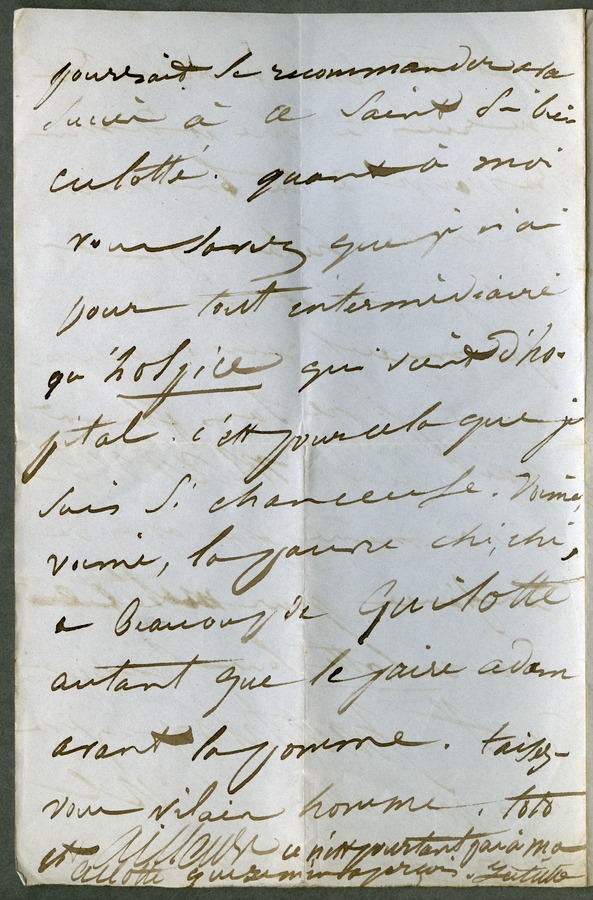 pourrait se recommander à sa
à ce saint si bien
culotté. quant à moi
vous savez que je n'ai
pour tout intermédiaire
qu'hospice qui vient d'ho-
pital. c'est pour cela que je
suis si chanceuse. Voimé,
voimé, la pauvre chichi,
a beaucoup de Guilotte
autant que le paire adam
avant la pomme. taisez-
vous vilain homme. toto
est ce n'est pourtant pas à ma
culotte que je m'en aperçois.